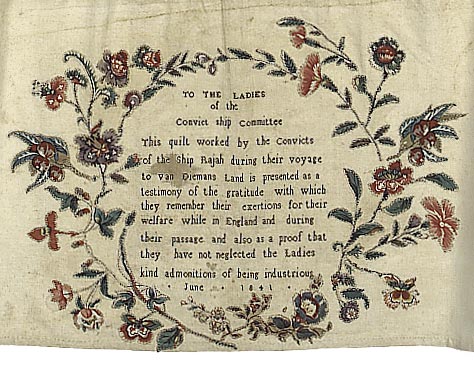 TO THE LADIES
of the
Convict ship Committee
This quilt worked by the Convicts
of the Ship Rajah during their voyage
to van Diemans Land is presented as a
testimony of the gratitude with which
they remember their exertions for their
welfare while in England and during
their passage and also as a proof that
they have not neglected the Ladies
kind admonitions of being industrious
* June * 1841 *